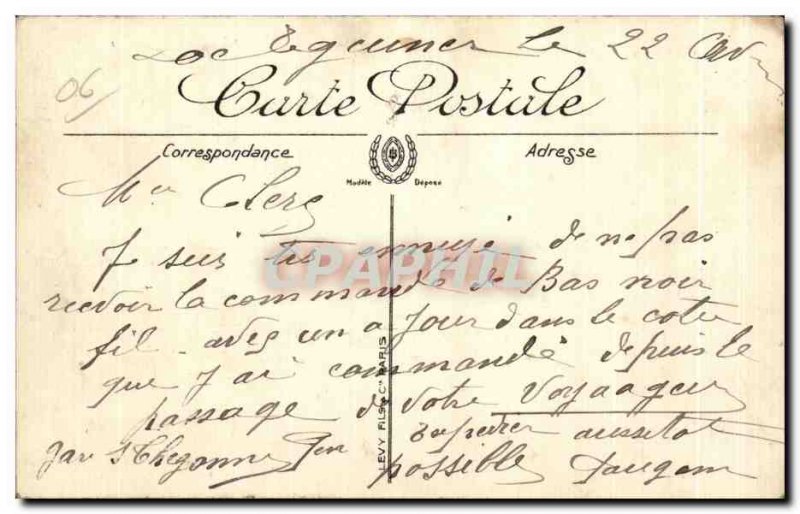 Loc Eguiner le 22 Avr
06/
Carte Postale
Correspondance
Adresse
Modèle Déposé
Mr Clerg
Je suis tes ennuyé de ne pas
recevoir la commande de Bas noir
fil avec un a Jour dans le coté
que J'ai commandé depuis le
passage de votre Voyageur
expedier aussitot
par St Thegonnec
possible
LEVY FILS & Cie PARIS
CPAPHIL